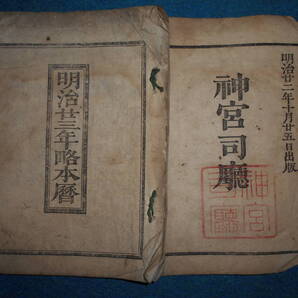 明治廿二年十月廿五日出版
神宮司廳
神宮司廳
明治廿三年略本暦